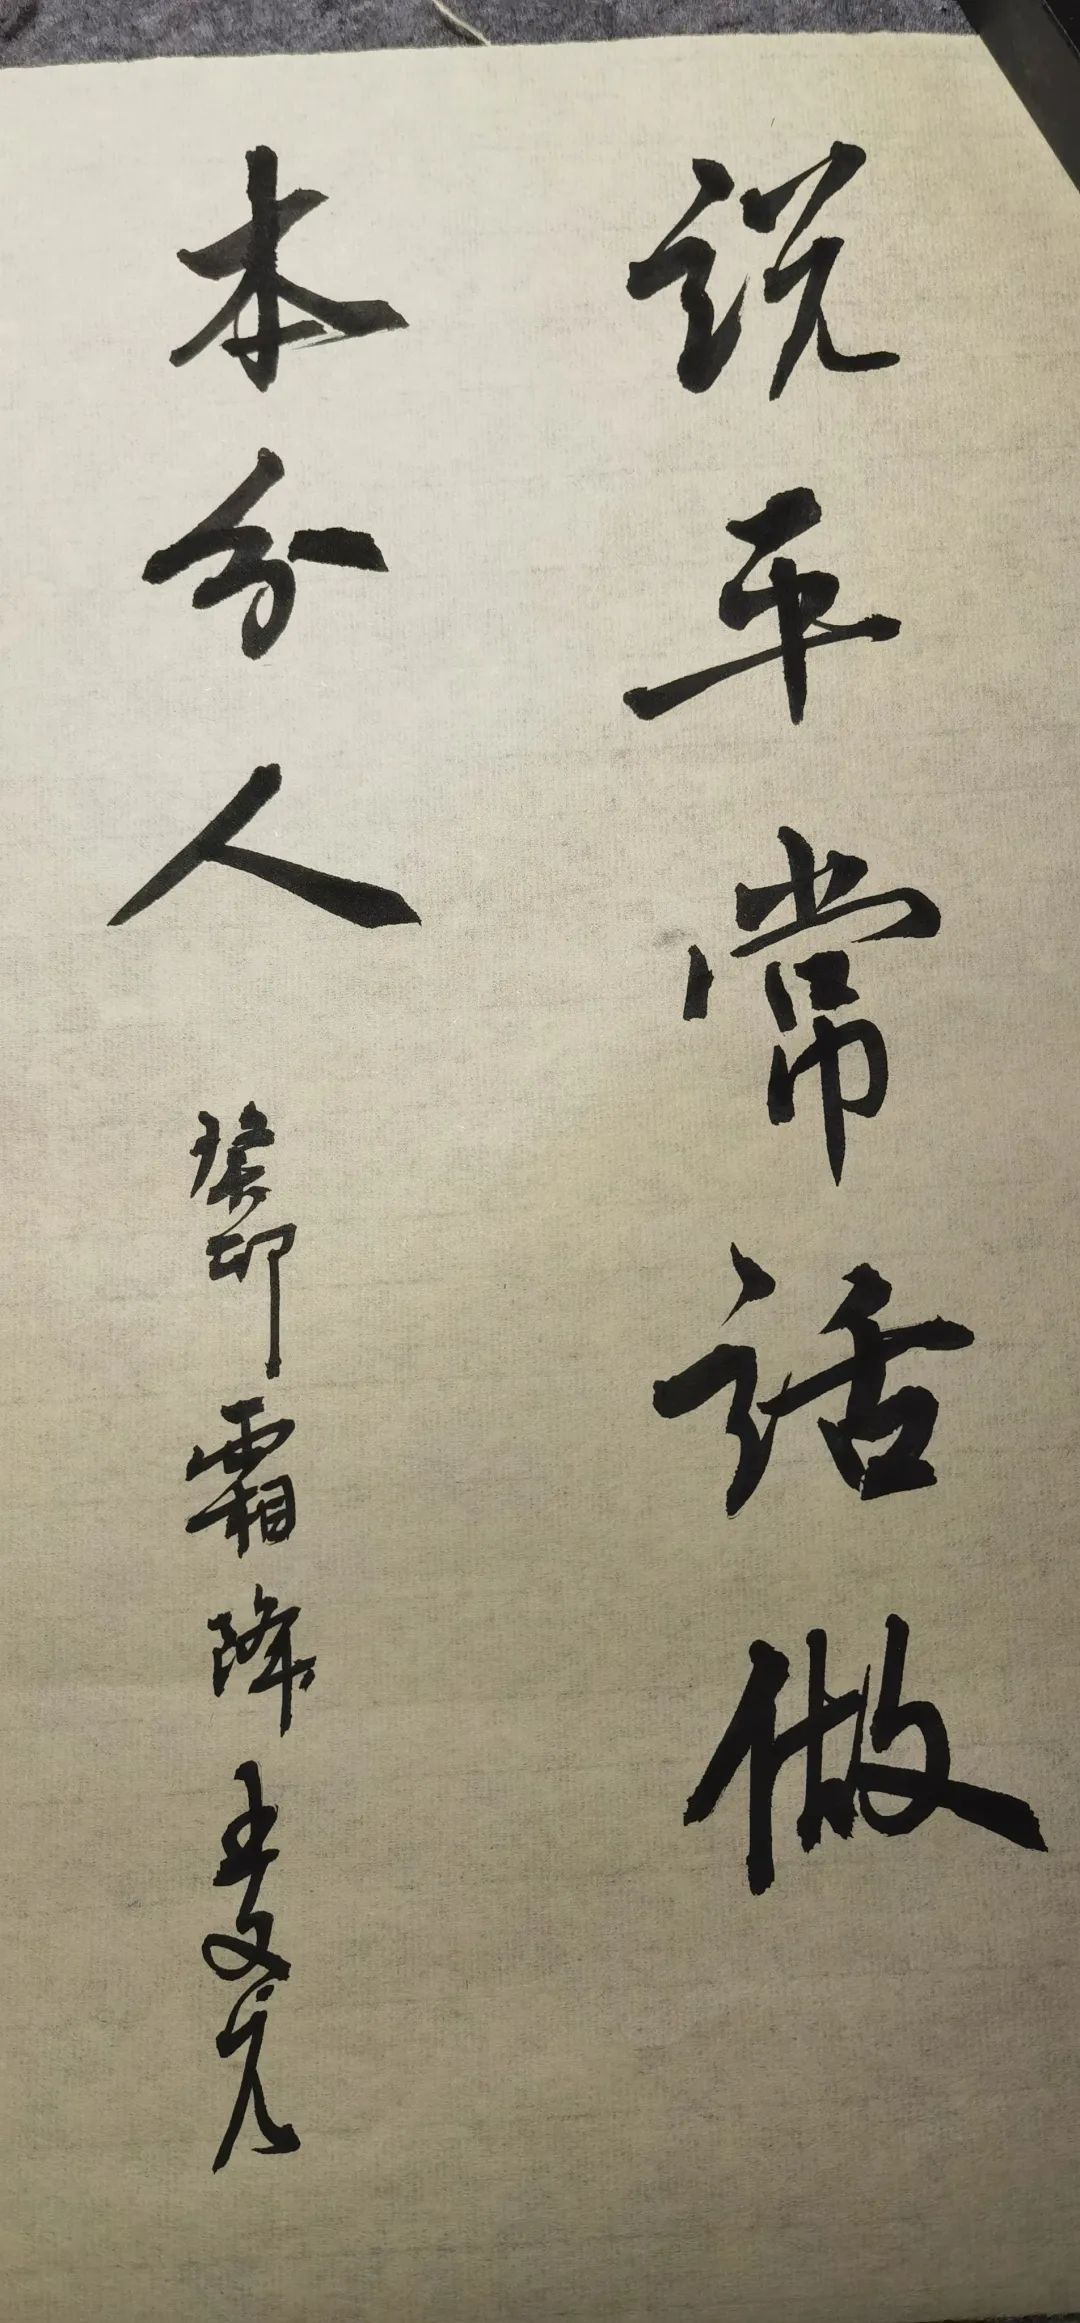 说平常话做
本分人 癸卯霜降 王文元